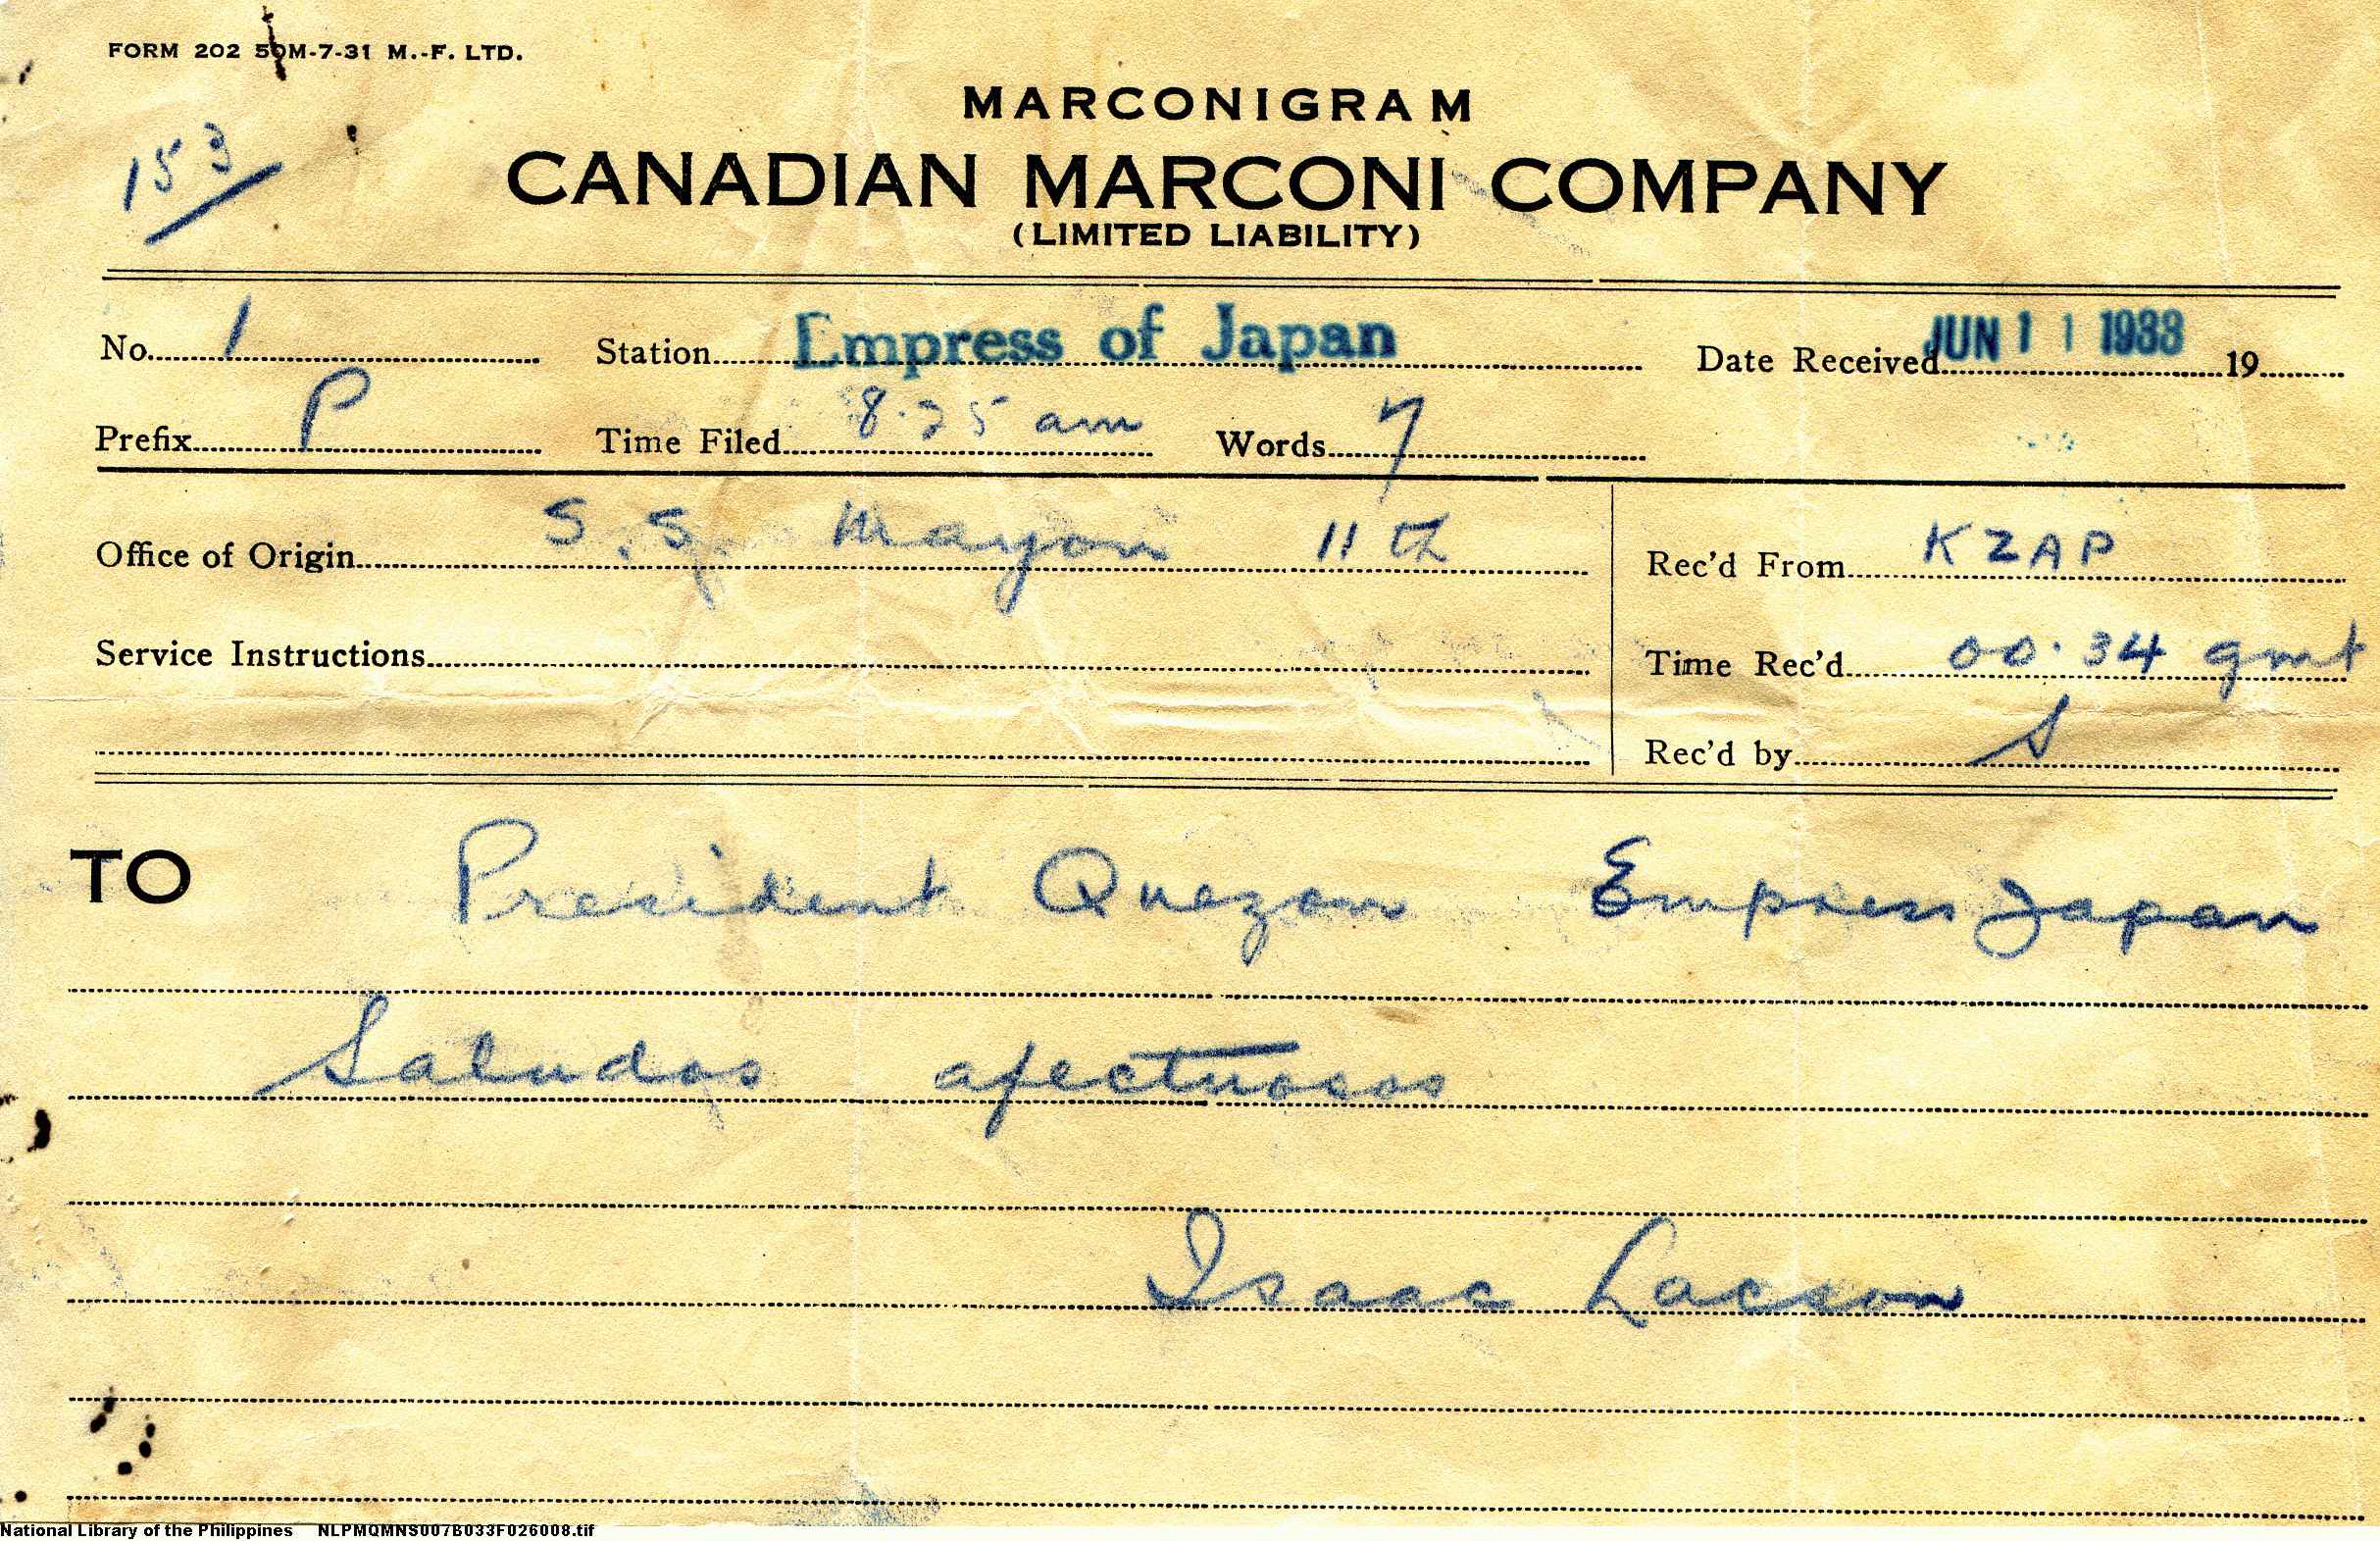 FORM 202 50M-7-31 M.-F. LTD.
MARCONIGRAM
153
CANADIAN MARCONI COMPANY
(LIMITED LIABILITY)
No. 1 Station Empress of Japan Date Received JUN 11 1938 19
Prefix P Time Filed 8.25 am Words 7
Office of Origin S.S. Mayon 11th Rec'd From KZAP
Service Instructions Time Rec'd 00.34 gmt
Rec'd by S
TO President Quezon Empress Japan
Saludos afectuosos
Isaac Lacson
National Library of the Philippines NLPMQMNS007B033F026008.tif